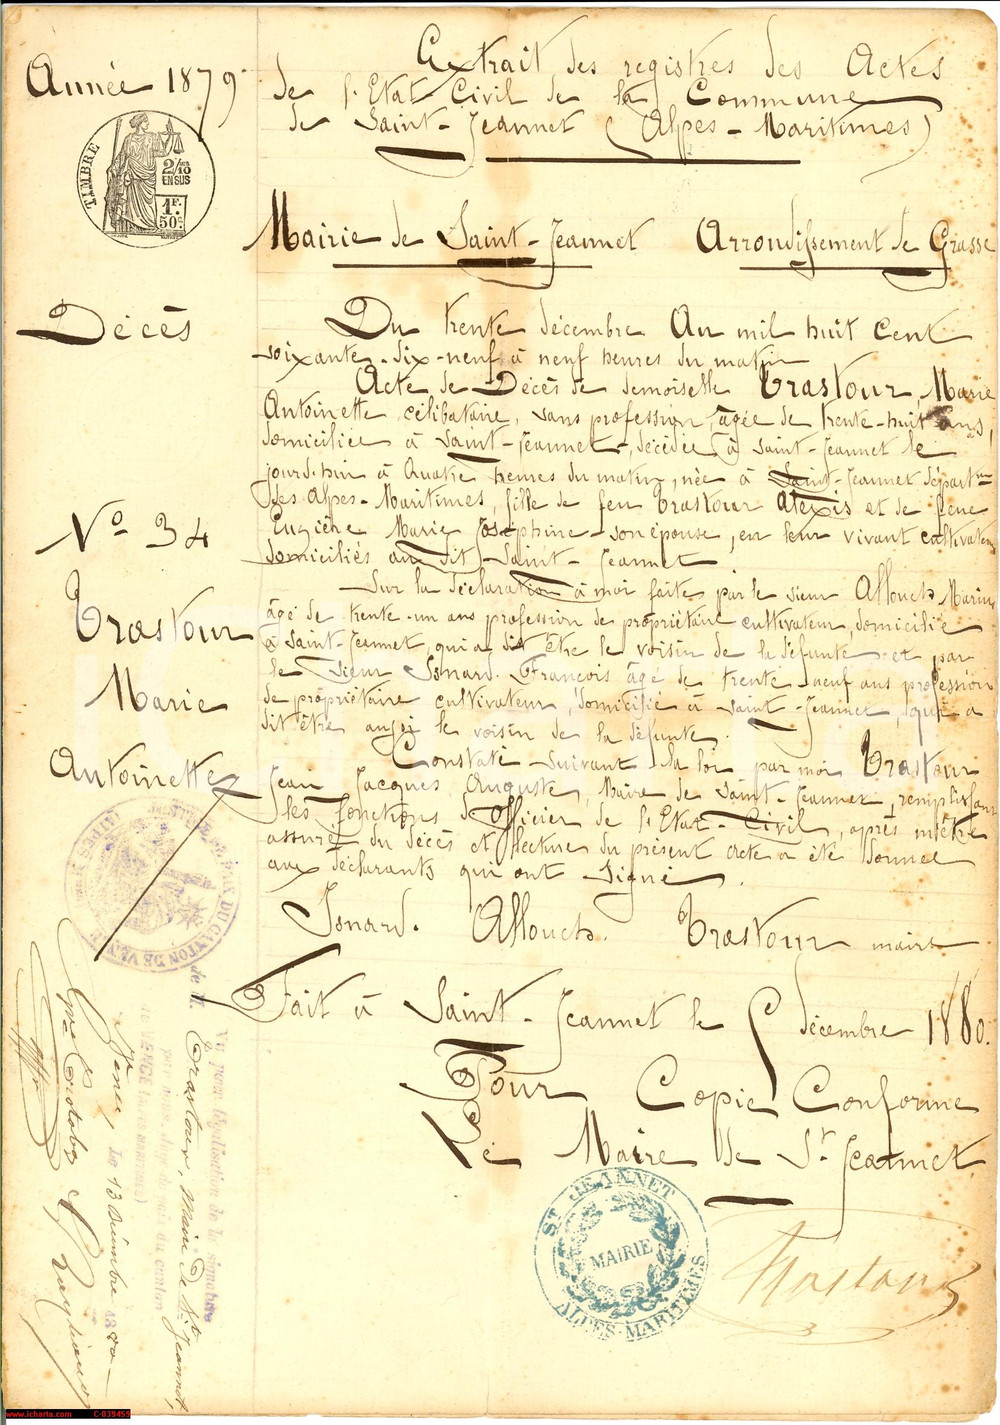 Année 1879
Extrait des registres des Actes
de l'Etat-Civil de la Commune
de Saint-Jeannet (Alpes-Maritimes)
TIMBRE
2/10
EN SUS
1F.
50c.
Mairie de Saint-Jeannet Arrondissement de Grasse
Décès
Du trente décembre An mil huit cent
soixante-dix-neuf à neuf heures du matin
Acte de Décès de demoiselle Trastour, Marie
Antoinette célibataire, sans profession, âgée de trente-huit ans,
domiciliée à Saint-Jeannet, décédée à Saint-Jeannet le
jourd'hui à quatre heures du matin, née à Saint-Jeannet départ
des Alpes-Maritimes, fille de feu Trastour Alexis et de feue
Euzière Marie Joséphine son épouse, en leur vivant cultivateurs
domiciliés au dit Saint-Jeannet
N° 34
Trastour
Marie
Antoinette
Sur la déclaration à moi faite par le sieur Allouch Marius
âgé de trente-un ans profession de propriétaire cultivateur, domicilié
à Saint-Jeannet, qui a dit être le voisin de la défunte et par
le Sieur Isnard François âgé de trente-neuf ans profession
de propriétaire cultivateur, domicilié à Saint-Jeannet, qui a
dit être aussi le voisin de la défunte.
Constaté suivant la loi par moi Trastour
Jean Jacques Auguste, Maire de Saint-Jeannet, remplissant
les fonctions d'Officier de l'Etat-Civil, après m'être
assuré du décès et lecture du présent acte a été donnée
aux déclarants qui ont Signé.
Isnard. Allouch. Trastour maire
Fait à Saint-Jeannet le 5 décembre 1880.
Pour Copie Conforme
Le Maire de St Jeannet
ST JEANNET
MAIRIE
ALPES-MARITIMES
Trastour
DU CANTON DE VENCE
Vu pour légalisation de la signature
de M. Trastour, Maire de St Jeannet,
par nous
juge de paix du canton
de VENCE (Alpes-Maritimes)
Vence, Le 13 décembre 1880
www.icharta.com C-839459